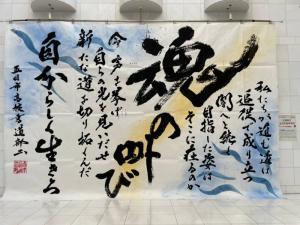 私たちが進む道は
追憶で成り立つ
闇へと続く
目指した姿は
そこに在るのか
魂の叫び
今
自らの光を見いだせ
新たな道を切り拓くんだ
自分らしく生きろ
五日市高校書道部